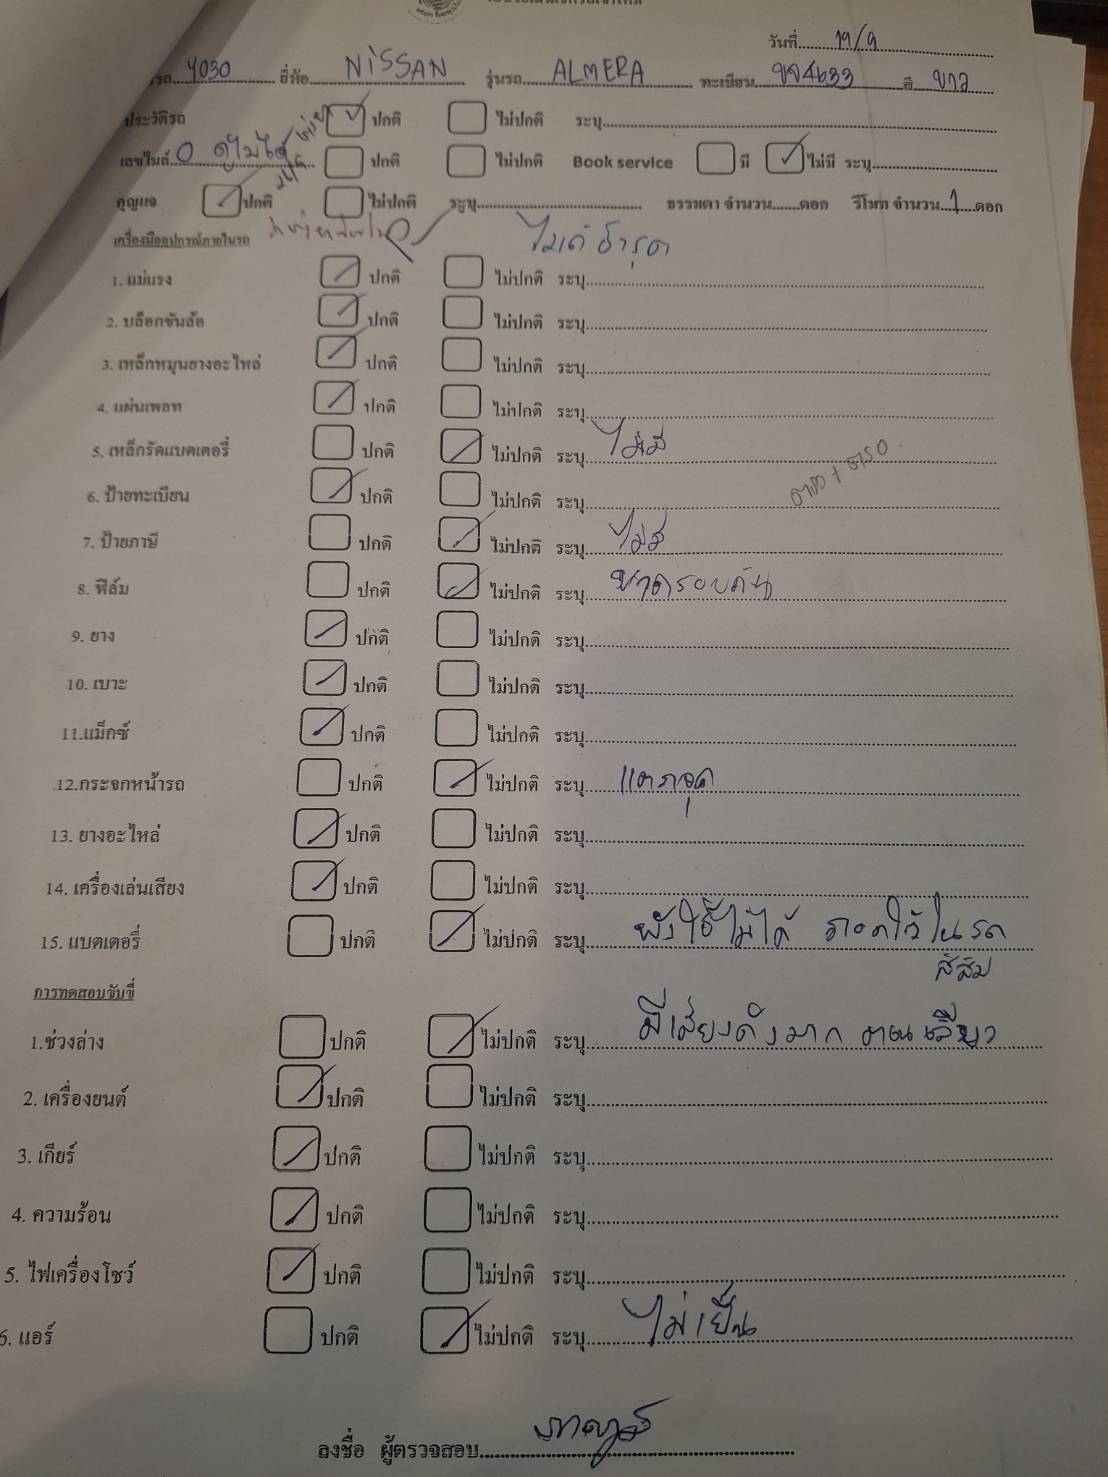 วันที่ 19/9
รถ 4030 ยี่ห้อ NiSSAN รุ่นรถ ALMERA ทะเบียน ขจ4633 สี ขาว
ประวัติรถ ปกติ ไม่ปกติ ระบุ
เลขไมล์ 0 ดูไม่ได้ ปกติ ไม่ปกติ Book service มี ไม่มี ระบุ
กุญแจ ปกติ ไม่ปกติ ระบุ ธรรมดา จำนวน ดอก รีโมท จำนวน 1 ดอก
เครื่องมืออุปกรณ์ภายในรถ ไมล์ชำรุด
1. แม่แรง ปกติ ไม่ปกติ ระบุ
2. บล็อกขันล้อ ปกติ ไม่ปกติ ระบุ
3. เหล็กหมุนยางอะไหล่ ปกติ ไม่ปกติ ระบุ
4. แผ่นเพลท ปกติ ไม่ปกติ ระบุ
5. เหล็กรัดแบตเตอรี่ ปกติ ไม่ปกติ ระบุ ไม่มี
6. ป้ายทะเบียน ปกติ ไม่ปกติ ระบุ
7. ป้ายภาษี ปกติ ไม่ปกติ ระบุ ไม่มี
8. ฟิล์ม ปกติ ไม่ปกติ ระบุ ขาดรอบคัน
9. ยาง ปกติ ไม่ปกติ ระบุ
10. เบาะ ปกติ ไม่ปกติ ระบุ
11.แม็กซ์ ปกติ ไม่ปกติ ระบุ
12.กระจกหน้ารถ ปกติ ไม่ปกติ ระบุ แตกจุด
13. ยางอะไหล่ ปกติ ไม่ปกติ ระบุ
14. เครื่องเล่นเสียง ปกติ ไม่ปกติ ระบุ
15. แบตเตอรี่ ปกติ ไม่ปกติ ระบุ พังใช้ไม่ได้ ถอดไว้ในรถ
สีส้ม
การทดสอบขับขี่
1.ช่วงล่าง ปกติ ไม่ปกติ ระบุ มีเสียงดังมาก ตอนเลี้ยว
2. เครื่องยนต์ ปกติ ไม่ปกติ ระบุ
3. เกียร์ ปกติ ไม่ปกติ ระบุ
4. ความร้อน ปกติ ไม่ปกติ ระบุ
5. ไฟเครื่องโชว์ ปกติ ไม่ปกติ ระบุ
6. แอร์ ปกติ ไม่ปกติ ระบุ ไม่เย็น
ลงชื่อ ผู้ตรวจสอบ